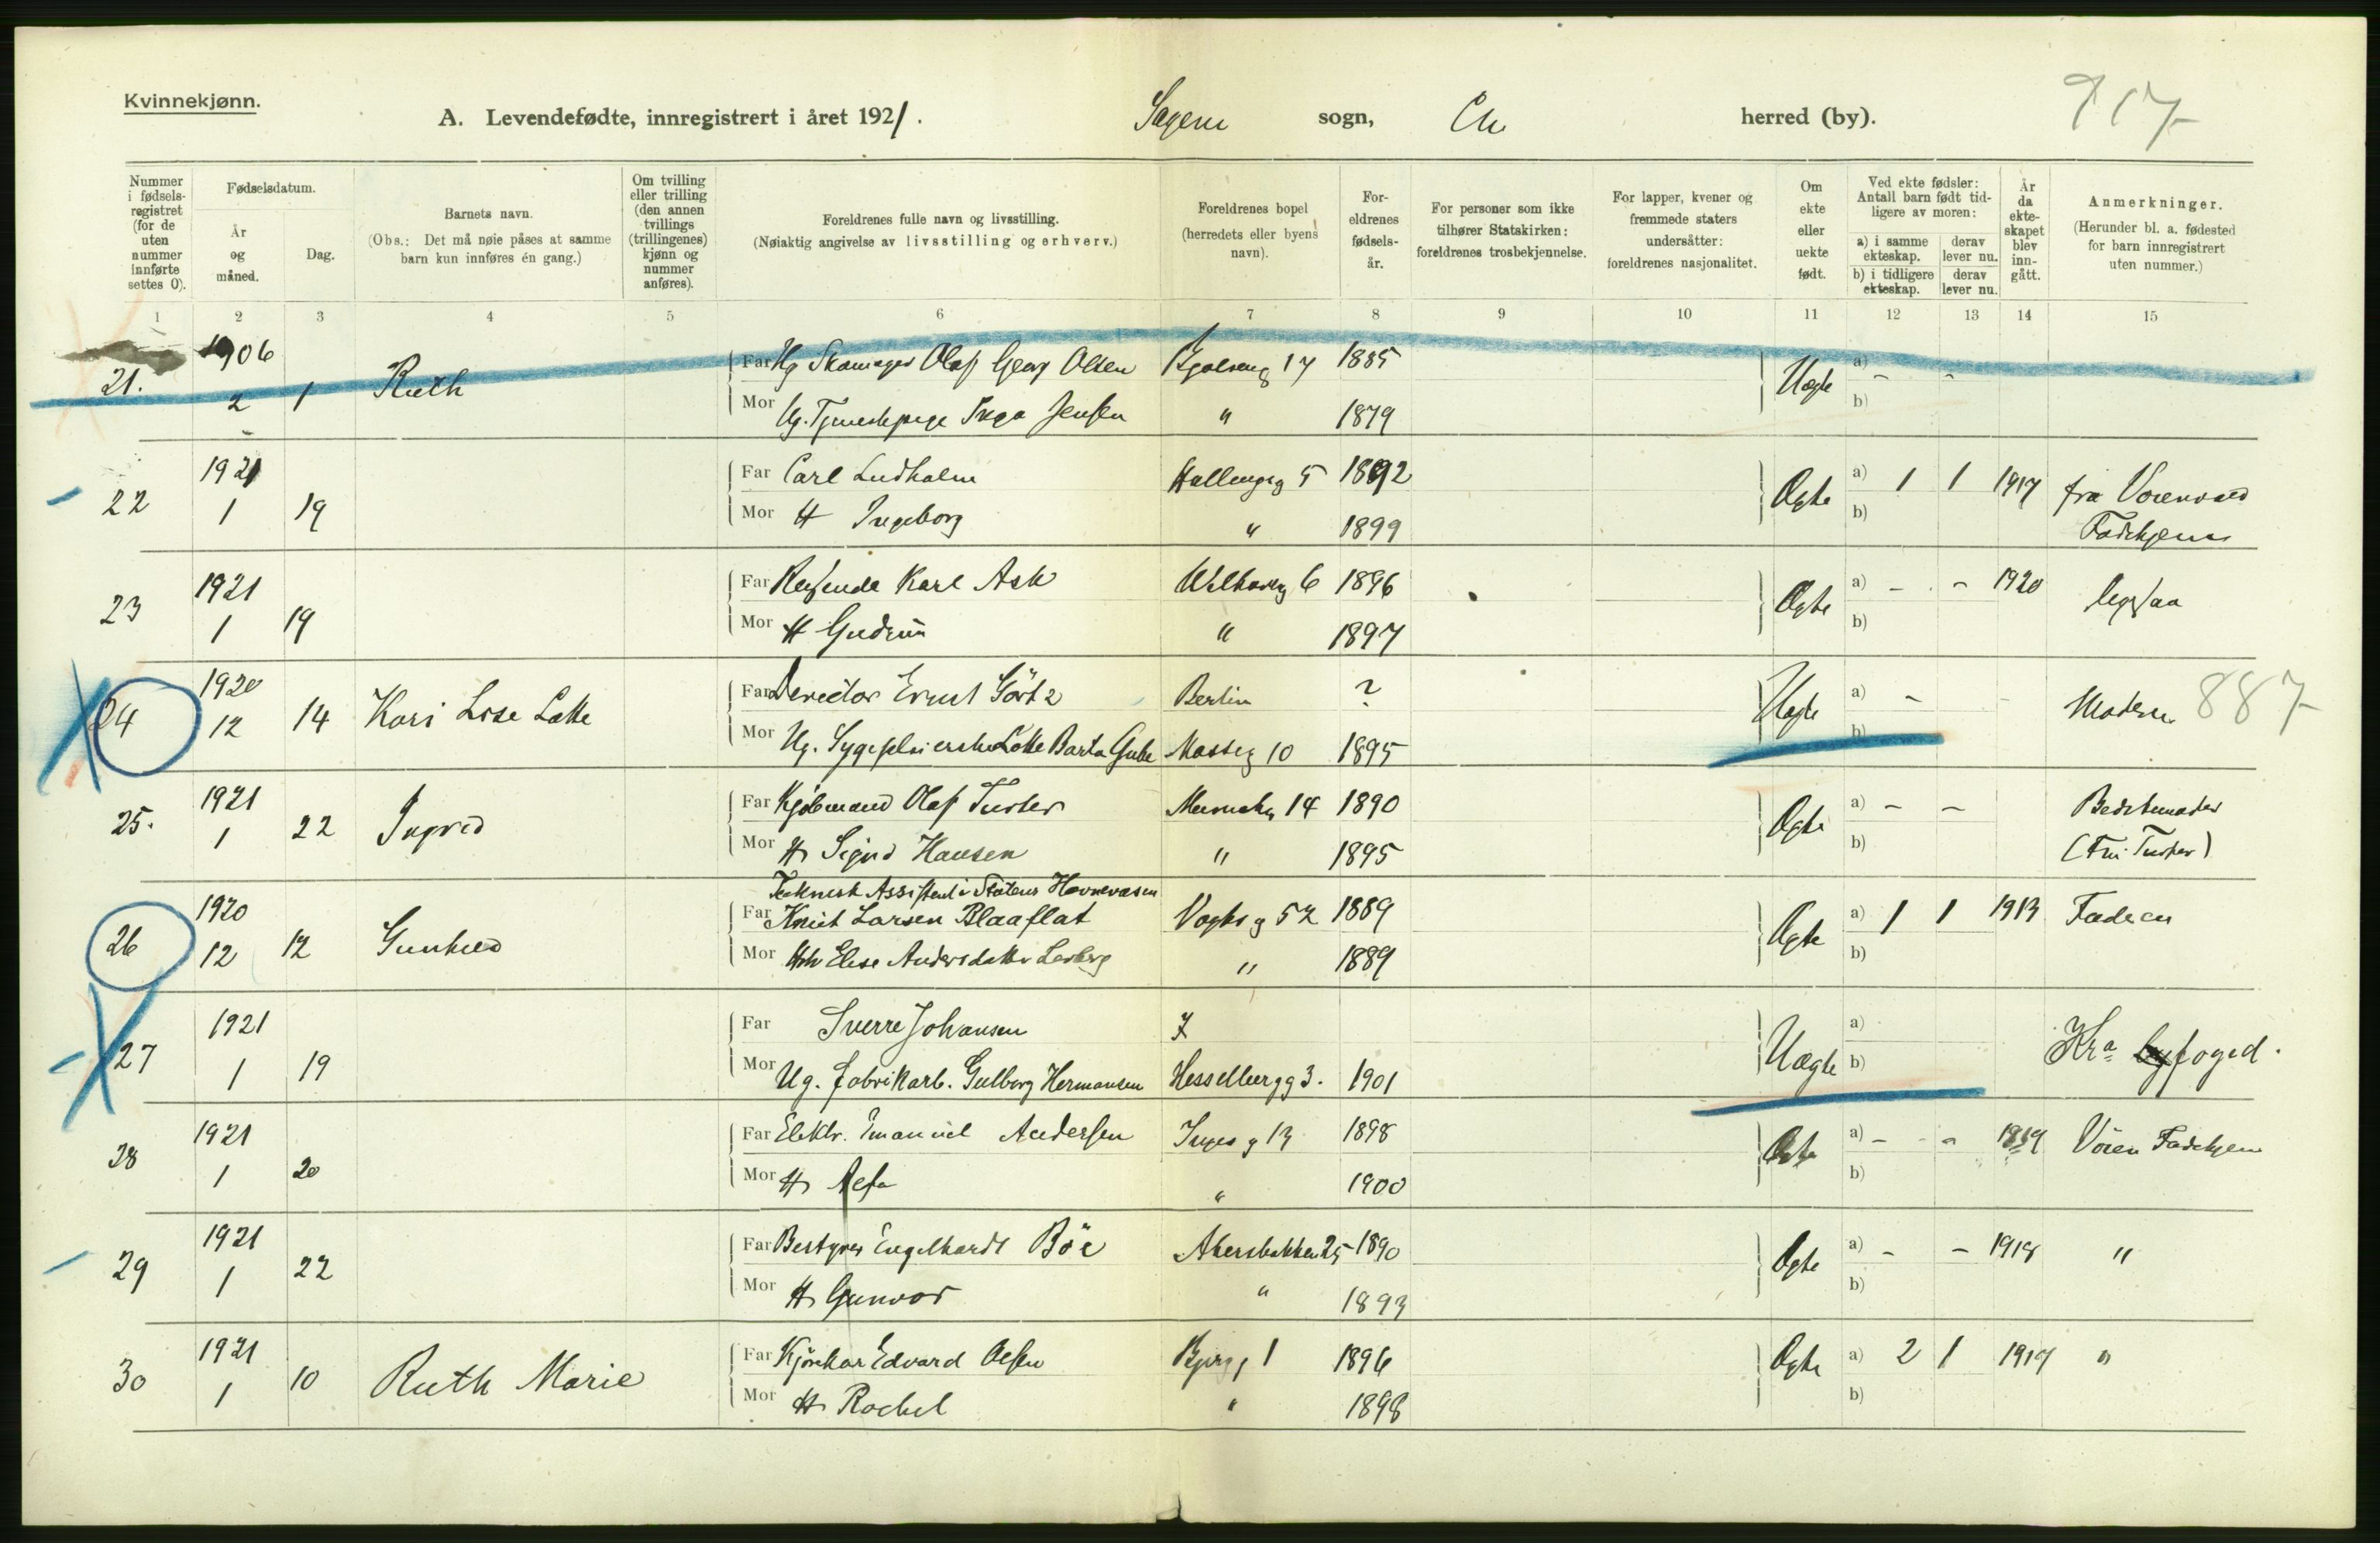 Kvinnekjønn.
A. Levendefødte, innregistrert i året 1921. Sagene sogn, Chr herred (by). 917
Nummer i fødselsregistret (for de uten nummer innførte settes 0).
Fødselsdatum.
År og måned.
Dag.
Barnets navn.
(Obs.: Det må nøie påses at samme barn kun innføres én gang.)
Om tvilling eller trilling (den annen tvillings (trillingenes) kjønn og nummer anføres).
Foreldrenes fulle navn og livsstilling.
(Nøiaktig angivelse av livsstilling og erhverv.)
Foreldrenes bopel (herredets eller byens navn).
Foreldrenes fødselsår.
For personer som ikke tilhører Statskirken: foreldrenes trosbekjennelse.
For lapper, kvener og fremmede staters undersåtter: foreldrenes nasjonalitet.
Om ekte eller uekte født.
Ved ekte fødsler: Antall barn født tidligere av moren:
a) i samme ekteskap.
derav lever nu.
b) i tidligere ekteskap.
derav lever nu.
År da ekteskapet blev inngått.
Anmerkninger.
(Herunder bl. a. fødested for barn innregistrert uten nummer.)
1 2 3 4 5 6 7 8 9 10 11 12 13 14 15
21. 1906 2 1 Ruth
Far Ug Skomager Olaf Georg Olsen 17 1885 Uægte a) - -
Mor Ug. Tjenestepige Inga Jensen " 1879 b)
22 1921 1 19
Far Carl Lindholm 5 1892 Ægte a) 1 1 1917 fra
Mor H Ingeborg " 1899 b) Fødehjem
23 1921 1 19
Far Reisende Karl Ask 6 1896 Ægte a) - - 1920 ligesaa
Mor H Gudrun " 1897 b)
24 1920 12 14 Kari Lise Lotte
Far Director Ernst Görtz Berlin ? Uægte a) - Moderen 887
Mor Ug. Sygepleierske Lotte Barta Gube 10 1895 b)
25. 1921 1 22 Ingrid
Far Kjøbmand Olaf Tusber 14 1890 Ægte a) - - Bedstemoder
Mor H Sigrid Hansen " 1895 b)
Teknisk Assistent i Statens Havnevæsen
26 1920 12 12 Gunhild
Far Knut Larsen Blaaflat Vogts g 52 1889 Ægte a) 1 1 1913 Faderen
Mor Elise Andersdatter " 1889 b)
27 1921 1 19
Far Sverre Johansen ? Uægte a) Kra byfoged.
Mor Ug. fabrikarb. Gulborg Hermansen Hesselbergg 3. 1901 b)
28 1921 1 20
Far Elektr. Emanuel Andersen g 13 1898 Ægte a) - - 1919 Vøien Fødehjem
Mor H " 1900 b)
29 1921 1 22
Far Bestyrer Engelhardt Böe Akersbakken 25 1890 Ægte a) - - 1918 "
Mor H Gunvor " 1893 b)
30 1921 1 10 Ruth Marie
Far Kjørekar Edvard Olsen 1 1896 Ægte a) 2 1 1917 "
Mor H Rachel " 1898 b)